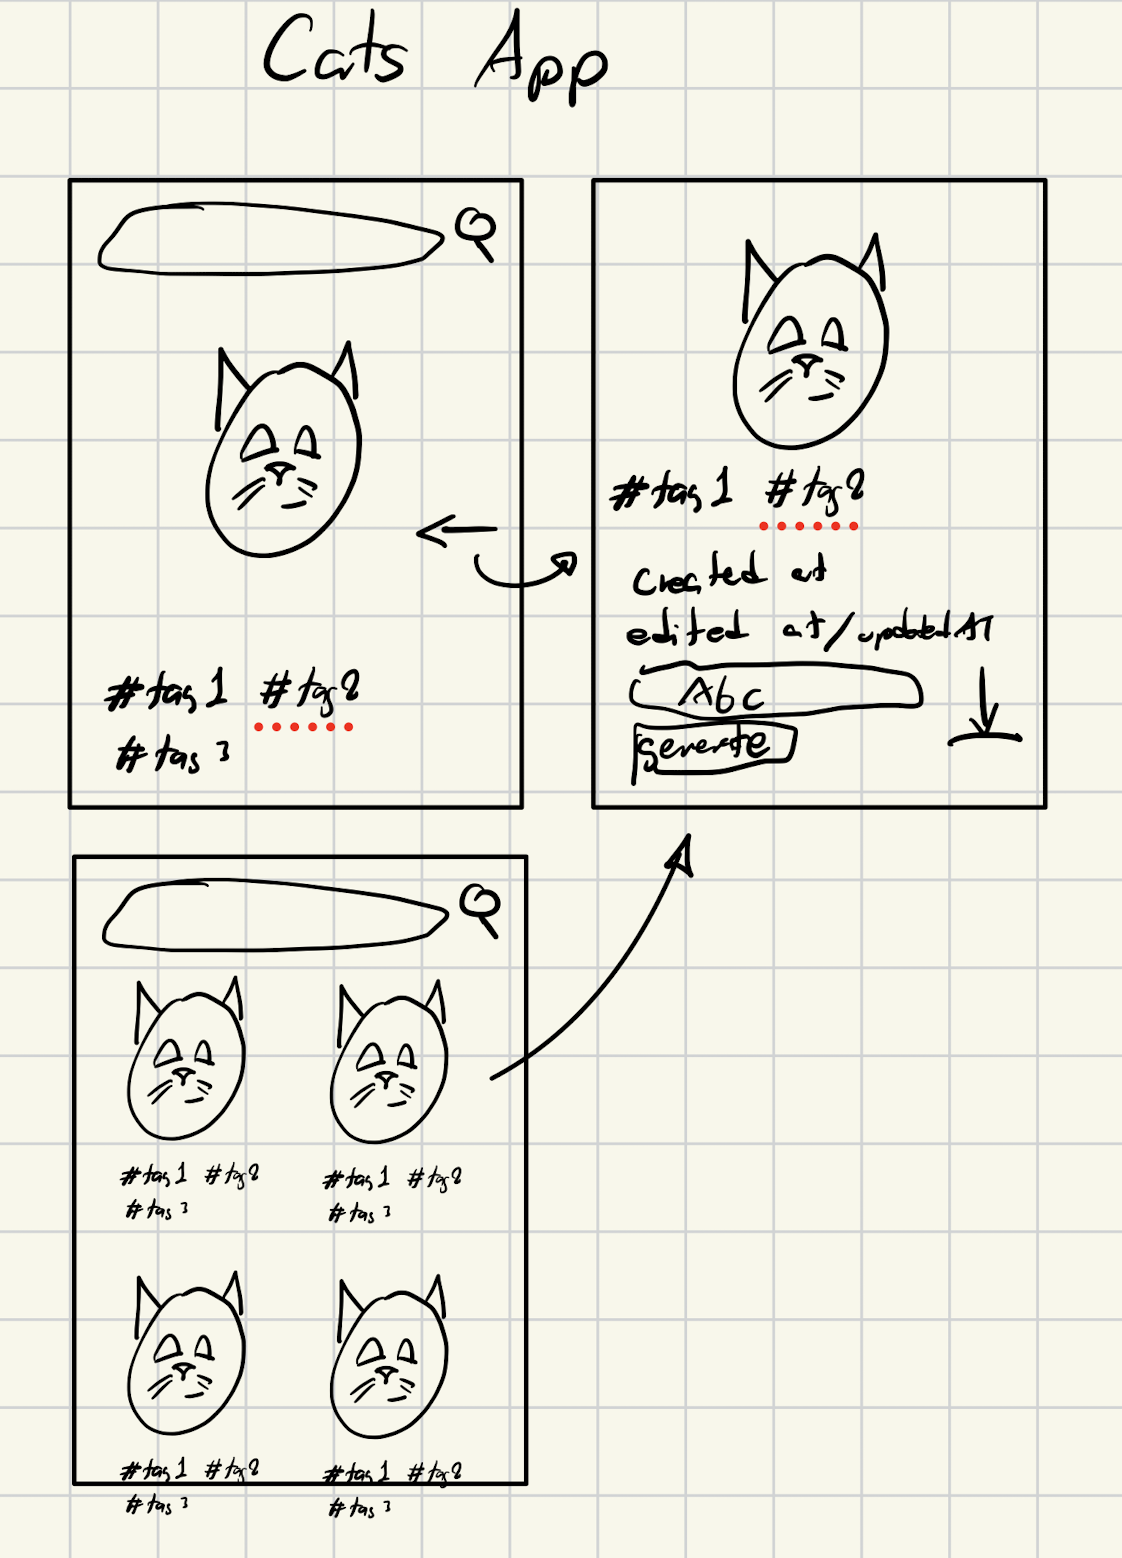 Cats App
#tag1 #tag2
#tag3
#tag1 #tag2
Created at
edited at/updatedAT
Abc
generate
#tag1 #tag2 #tag1 #tag2
#tag3 #tag3
#tag1 #tag2 #tag1 #tag2
#tag3 #tag3